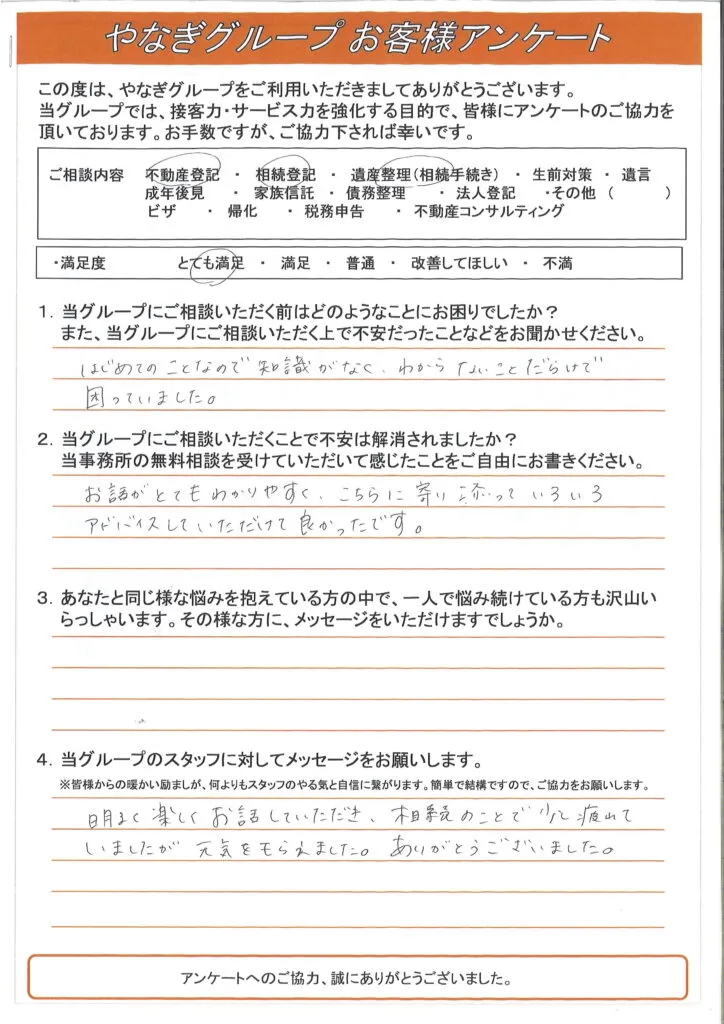 やなぎグループ お客様アンケート
この度は、やなぎグループをご利用いただきましてありがとうございます。
当グループでは、接客力・サービス力を強化する目的で、皆様にアンケートのご協力を
頂いております。お手数ですが、ご協力下されば幸いです。
ご相談内容 不動産登記 ・ 相続登記 ・ 遺産整理(相続手続き) ・ 生前対策 ・ 遺言
成年後見 ・ 家族信託 ・ 債務整理 ・ 法人登記 ・その他 ( )
ビザ ・ 帰化 ・ 税務申告 ・ 不動産コンサルティング
・満足度 とても満足 ・ 満足 ・ 普通 ・ 改善してほしい ・ 不満
1. 当グループにご相談いただく前はどのようなことにお困りでしたか?
また、当グループにご相談いただく上で不安だったことなどをお聞かせください。
はじめてのことなので知識がなく、わからないことだらけで
困っていました。
2. 当グループにご相談いただくことで不安は解消されましたか?
当事務所の無料相談を受けていただいて感じたことをご自由にお書きください。
お話がとてもわかりやすく、こちらに寄り添っていろいろ
アドバイスしていただけて良かったです。
3. あなたと同じ様な悩みを抱えている方の中で、一人で悩み続けている方も沢山い
らっしゃいます。その様な方に、メッセージをいただけますでしょうか。
4. 当グループのスタッフに対してメッセージをお願いします。
※皆様からの暖かい励ましが、何よりもスタッフのやる気と自信に繋がります。簡単で結構ですので、ご協力をお願いします。
明るく楽しくお話していただき、相続のことで少し疲れて
いましたが元気をもらえました。ありがとうございました。
アンケートへのご協力、誠にありがとうございました。